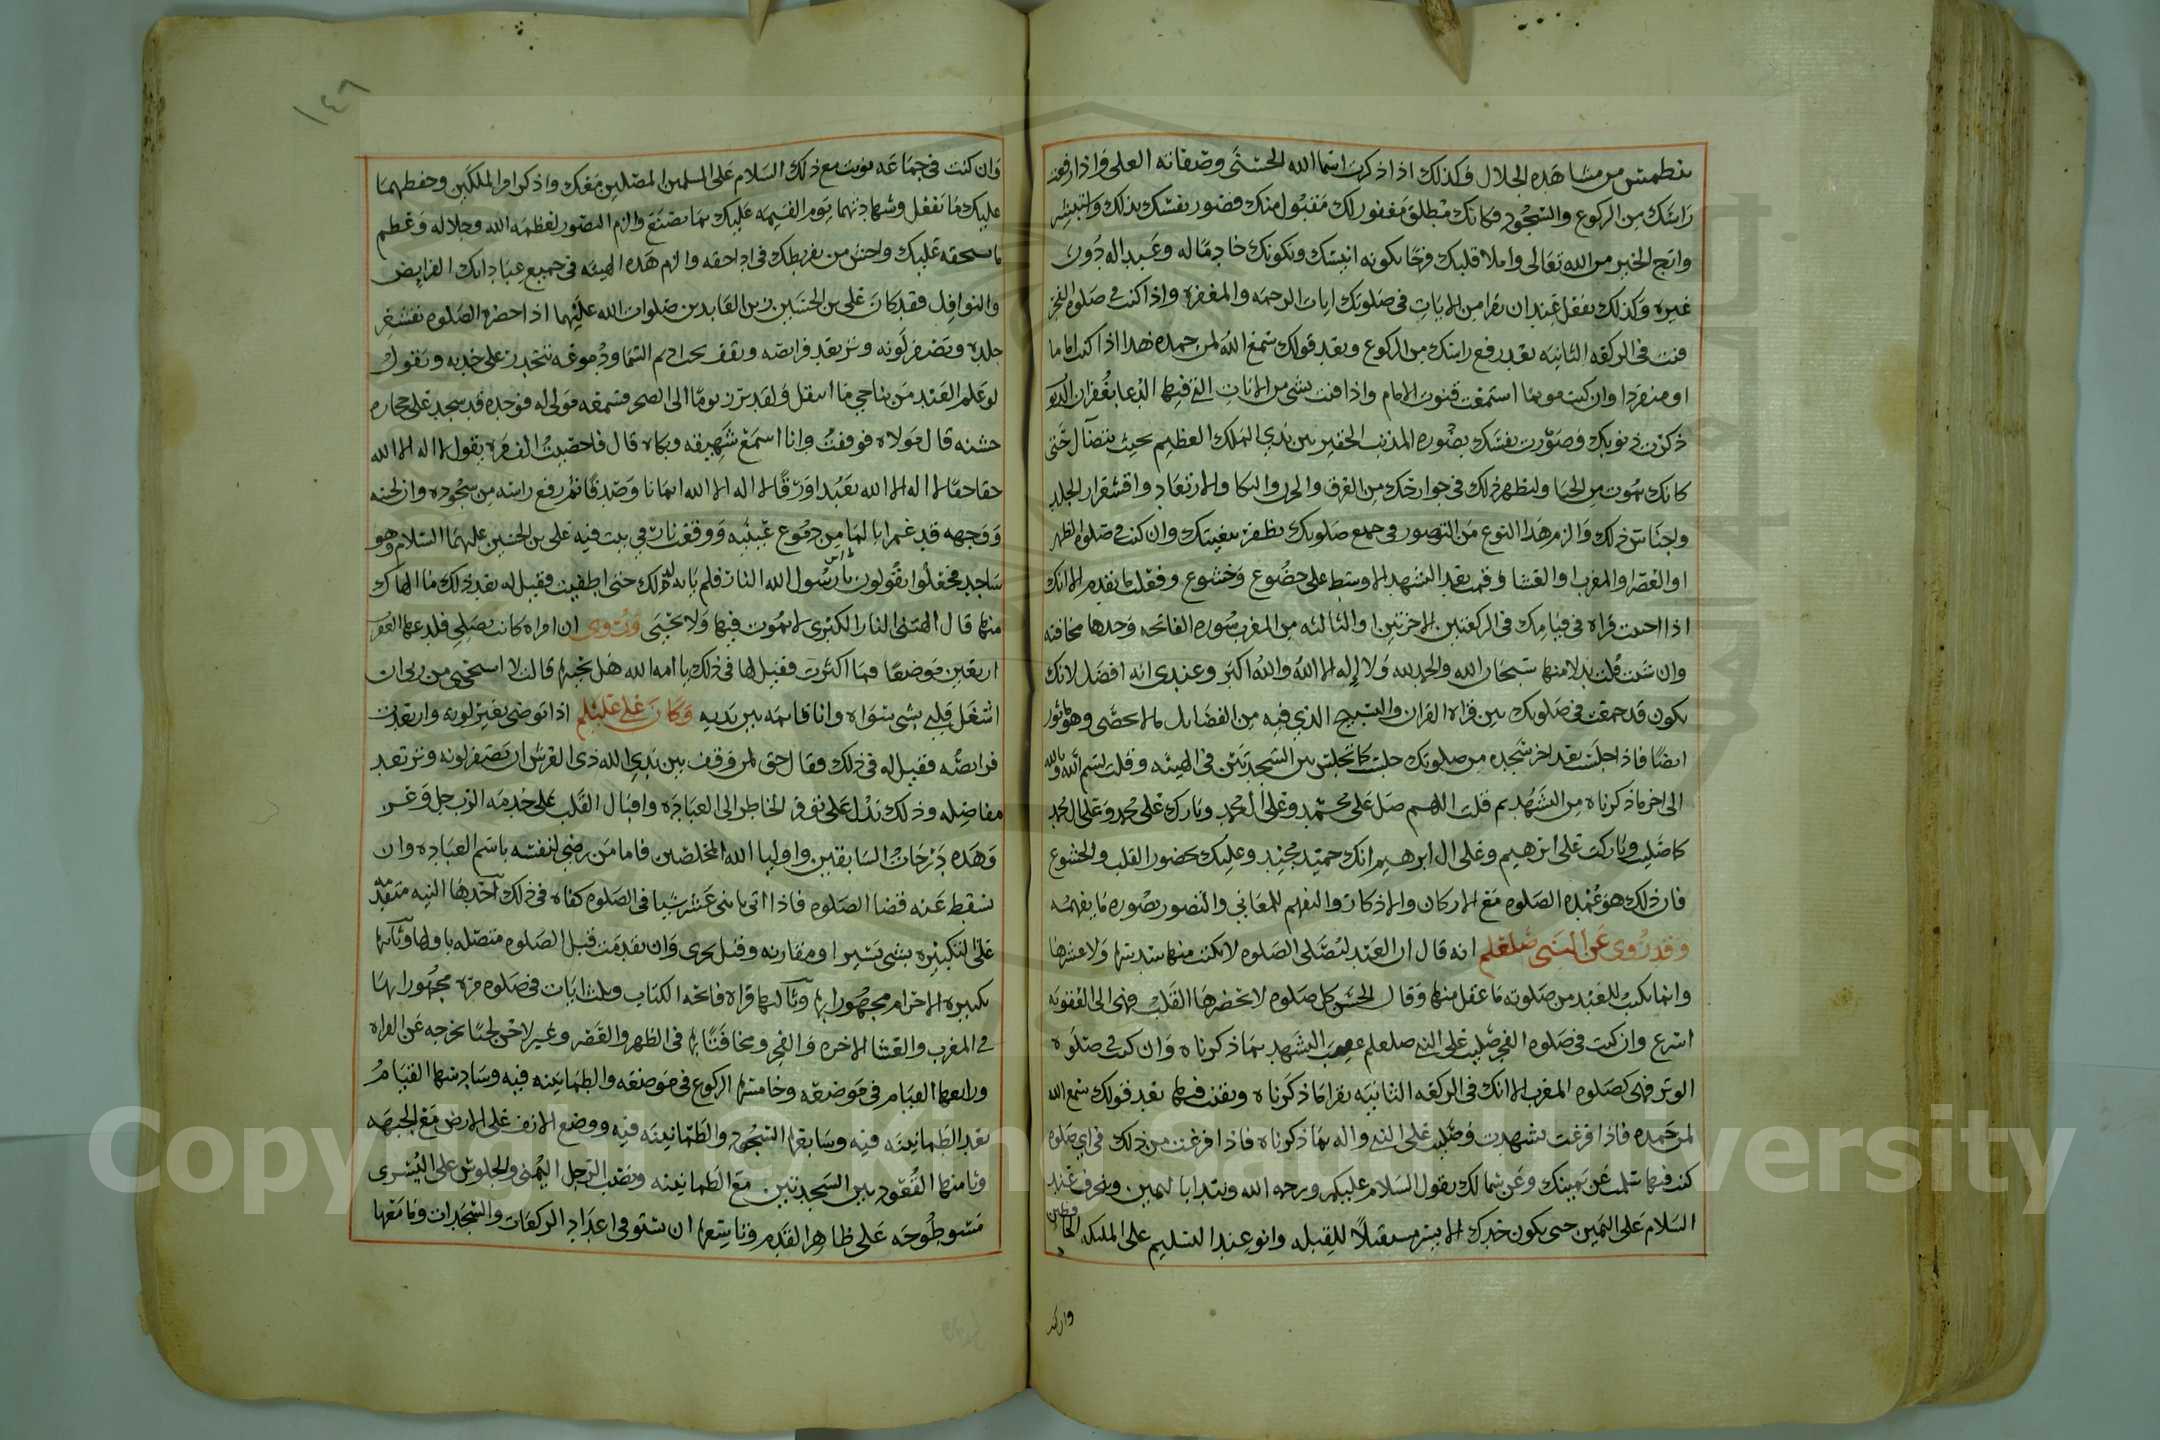 من مشاهده الجلال وكذلك اذا ذكرت اسما الله الحسنى وصفاته العلى واذا رفعت
راسك من الركوع والسجود فكانك مطلق مغفور لك مقبول منك فصور نفسك بذلك واستبشر
وانج الخير من الله تعالى واملا قلبك فرحًا بكونه انيسك وبكونك خادمًا له وعبد اله دون
غيره وكذلك تفعل عند ان تقرا من الايات في صلوتك ايات الرحمه والمغفره واذا كنت في صلوه الفجر
قنت في الركعه الثانيه بعد رفع راسك من الركوع وبعد قولك سمع الله لمن حمده هذا اذا كنت اماما
او منفردا وان كنت موتمًا استمعت قنوت الامام واذا قنت بشي من الايات التي فيها الدعا بغفران الذنوب
ذكرت ذنوبك وصورت نفسك بصوره المذنب الحقير بين يدي الملك العظيم بحيث تتضآل حتى
كانك تموت من الحيا وليظهر ذلك في جوارحك من العرق والحزن والبكا والارتعاد واقشعرار الجلد
ولجناس ذلك والزم هذا النوع من التصور في جميع صلوتك تظفر ببغيتك وان كنت في صلوه الظهر
او العصر او المغرب او العشا وقمت بعد التشهد الاوسط على خضوع وخشوع وفعلت ما تقدم الا انك
اذا احببت قراه في قيامك في الركعتين الاخرتين او الثالثه من المغرب سوره الفاتحه وحدها مخافته
وان شئت قلت بدلا منها سبحان الله والحمد لله ولا اله الا الله والله اكبر وعندي انه افضل لانك
تكون قد جمعت في صلوتك بين قراه القران والتسبيح الذي فيه من الفضايل ما لا يحصى وهو ماثور
ايضًا فاذا جلست بعد اخر سجده من صلوتك جلست كما تجلس بين السجدتين في الهيئه وقلت بسم الله وبالله
الى اخر ما ذكرناه من التشهد ثم قلت اللهم صل على محمد وعلى ال محمد وبارك على محمد وعلى ال محمد
كما صليت وباركت على ابرهيم وعلى ال ابرهيم انك حميد مجيد وعليك بحضور القلب والخشوع
فان ذلك هو عمده الصلوه مع الاركان والاذكار والتفهم للمعاني والتصور بصوره ما يفهمه
وقد روي عن النبي صلعلم انه قال ان العبد ليصلي الصلوه لا يكتب منها سدسها ولا عشرها
وانما يكتب للعبد من صلوته ما عقل منها وقال الحسن كل صلوه لا يحضرها القلب فهي الى العقوبه
اسرع وان كنت في صلوه الفجر صليت على النبي صلعلم عقيب التشهد بما ذكرناه وان كنت في صلوه
الوتر فهي كصلوه المغرب الا انك في الركعه الثانيه تقرا ما ذكرناه وتقنت فيها بعد قولك سمع الله
لمن حمده فاذا فرغت تشهدت وصليت على النبي واله بما ذكرناه فاذا فرغت من ذلك في اي صلوه
كنت فيها سلمت عن يمينك وعن شمالك بقول السلام عليكم ورحمه الله وتبتدا باليمين وتحرف عند
السلام على اليمين حتى يكون خدك الايسر مستقبلًا للقبله وانو عند التسليم على الملكه الحافظين
وان كنت
١٤٦
وان كنت في جماعه نويت مع ذلك السلام على المسلمين المصلين معك واذكر امر الملكين وحفظهما
عليك ما تفعل وشهادتهما يوم القيمه عليك بما تصنع والزم التصور لعظمه الله وجلاله وعظم
ما يستحقه عليك واخش من تفريطك في اداحقه والزم هذه الهيئه في جميع عباداتك الفرايض
والنوافل فقد كان علي بن الحسين زين العابدين صلوات الله عليهما اذا حضره الصلوه تقشعر
جلده ويصفر لونه وترتعد فرايصه ويقف تحت اديم السما ودموعه تنحدر على خديه ويقول
لو علم العبد من يناجي ما انفتل ولقد برز يومًا الى الصحرا فتبعه مولى له فوجده قد سجد على حجاره
خشنه قال مولاه فوقفت وانا اسمع شهيقه وبكاه قال فاحصيت الف مره يقول لا اله الا الله
حقا حقا لا اله الا الله تعبدا ورقًا لا اله الا الله ايمانا وصدقا ثم رفع راسه من سجوده وان لحيته
ووجهه قد غمرا بالما من دموع عينيه ووقعت نار في بيت فيه علي بن الحسين عليهما السلام وهو
ساجد فجعلوا يقولون يابن رسول الله النار فلم يابه لذلك حتى اطفيت فقيل له بعد ذلك ما الهاك
منها قال الهتني النار الكبرى لا يموت فيها ولا يحيى وروي ان امراه كانت تصلي فلدعها العقرب
اربعين موضعًا فما اكترت فقيل لها في ذلك يا امه الله هل نحيها قالت لا استحيي من ربي ان
اشغل قلبي بشي سواه وانا قايمه بين يديه وكان علي عليلم اذا توضى تغير لونه وارتعدت
فرايصه فقيل له في ذلك فقال حق لمن وقف بين يدي الله ذي العرش ان يصفر لونه وترتعد
مفاصله وذلك يدل على توفر الخاطر الى العباده واقبال القلب على خدمه الرب جل وعز
وهذه درجات السابقين واوليا الله المخلصين فاما من رضي لنفسه باسم العباده وان
تسقط عنه قضا الصلوه فاذا اتى باثنى عشر شيا في الصلوه كفاه في ذلك احدها النيه متقدمه
على التكبيره بشي يسير او مقارنه وقيل تجزي وان تقدمت قبل الصلوه متصله باولها وثانيها
تكبيره الاحرام مجهورا بها وثالثها قراه فاتحه الكتاب وثلث ايات في صلوه مره مجهورا بها
في المغرب والعشا الاخره والفجر ومخافتًا بها في الظهر والعصر وغير لاحن لحنًا يخرجه عن القراه
ورابعها القيام في موضعه وخامسها الركوع في موضعه والطمانينه فيه وسادسها القيام
بعد الطمانينه فيه وسابعها السجود والطمانينه فيه ووضع الانف على الارض مع الجبهه
وثامنها القعود بين السجدتين مع الطمانينه ونصب الرجل اليمنى والجلوس على اليسرى
مشطوحه على ظاهر القدم وتاسعها ان تستوفي اعداد الركعات والسجدات وتتابعها
Copyright © King Saud University